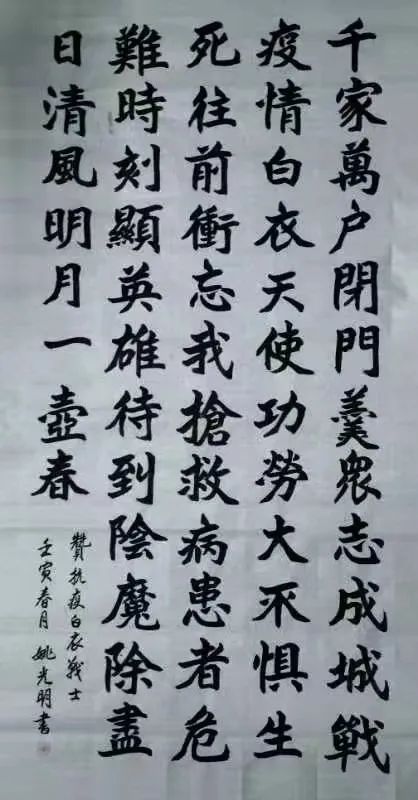 千家萬户閉門羹衆志成城戰
疫情白衣天使功勞大不懼生
死往前衝忘我搶救病患者危
難時刻顯英雄待到陰魔除盡
日清風明月一壺春
贊抗疫白衣戰士
壬寅春月姚光明書